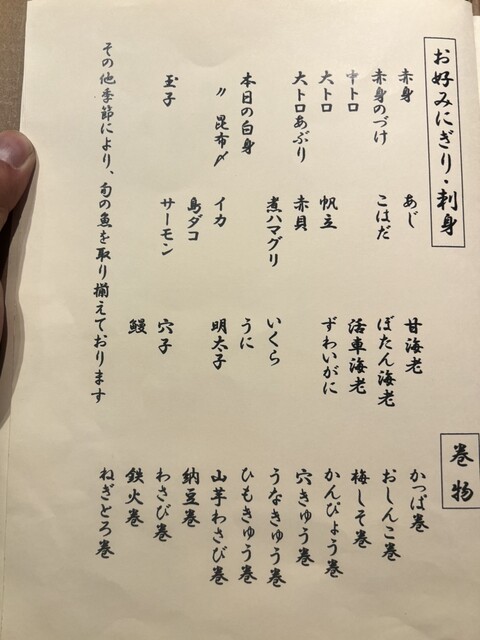 お好みにぎり・刺身
赤身
赤身のづけ
中トロ
大トロ
大トロあぶり
本日の白身
〃 昆布〆
玉子
あじ
こはだ
帆立
赤貝
煮ハマグリ
イカ
島ダコ
サーモン
甘海老
ぼたん海老
活車海老
ずわいがに
いくら
うに
明太子
穴子
鰻
その他季節により、旬の魚を取り揃えております
巻物
かっぱ巻
おしんこ巻
梅しそ巻
かんぴょう巻
穴きゅう巻
うなきゅう巻
ひもきゅう巻
山芋わさび巻
納豆巻
わさび巻
鉄火巻
ねぎとろ巻